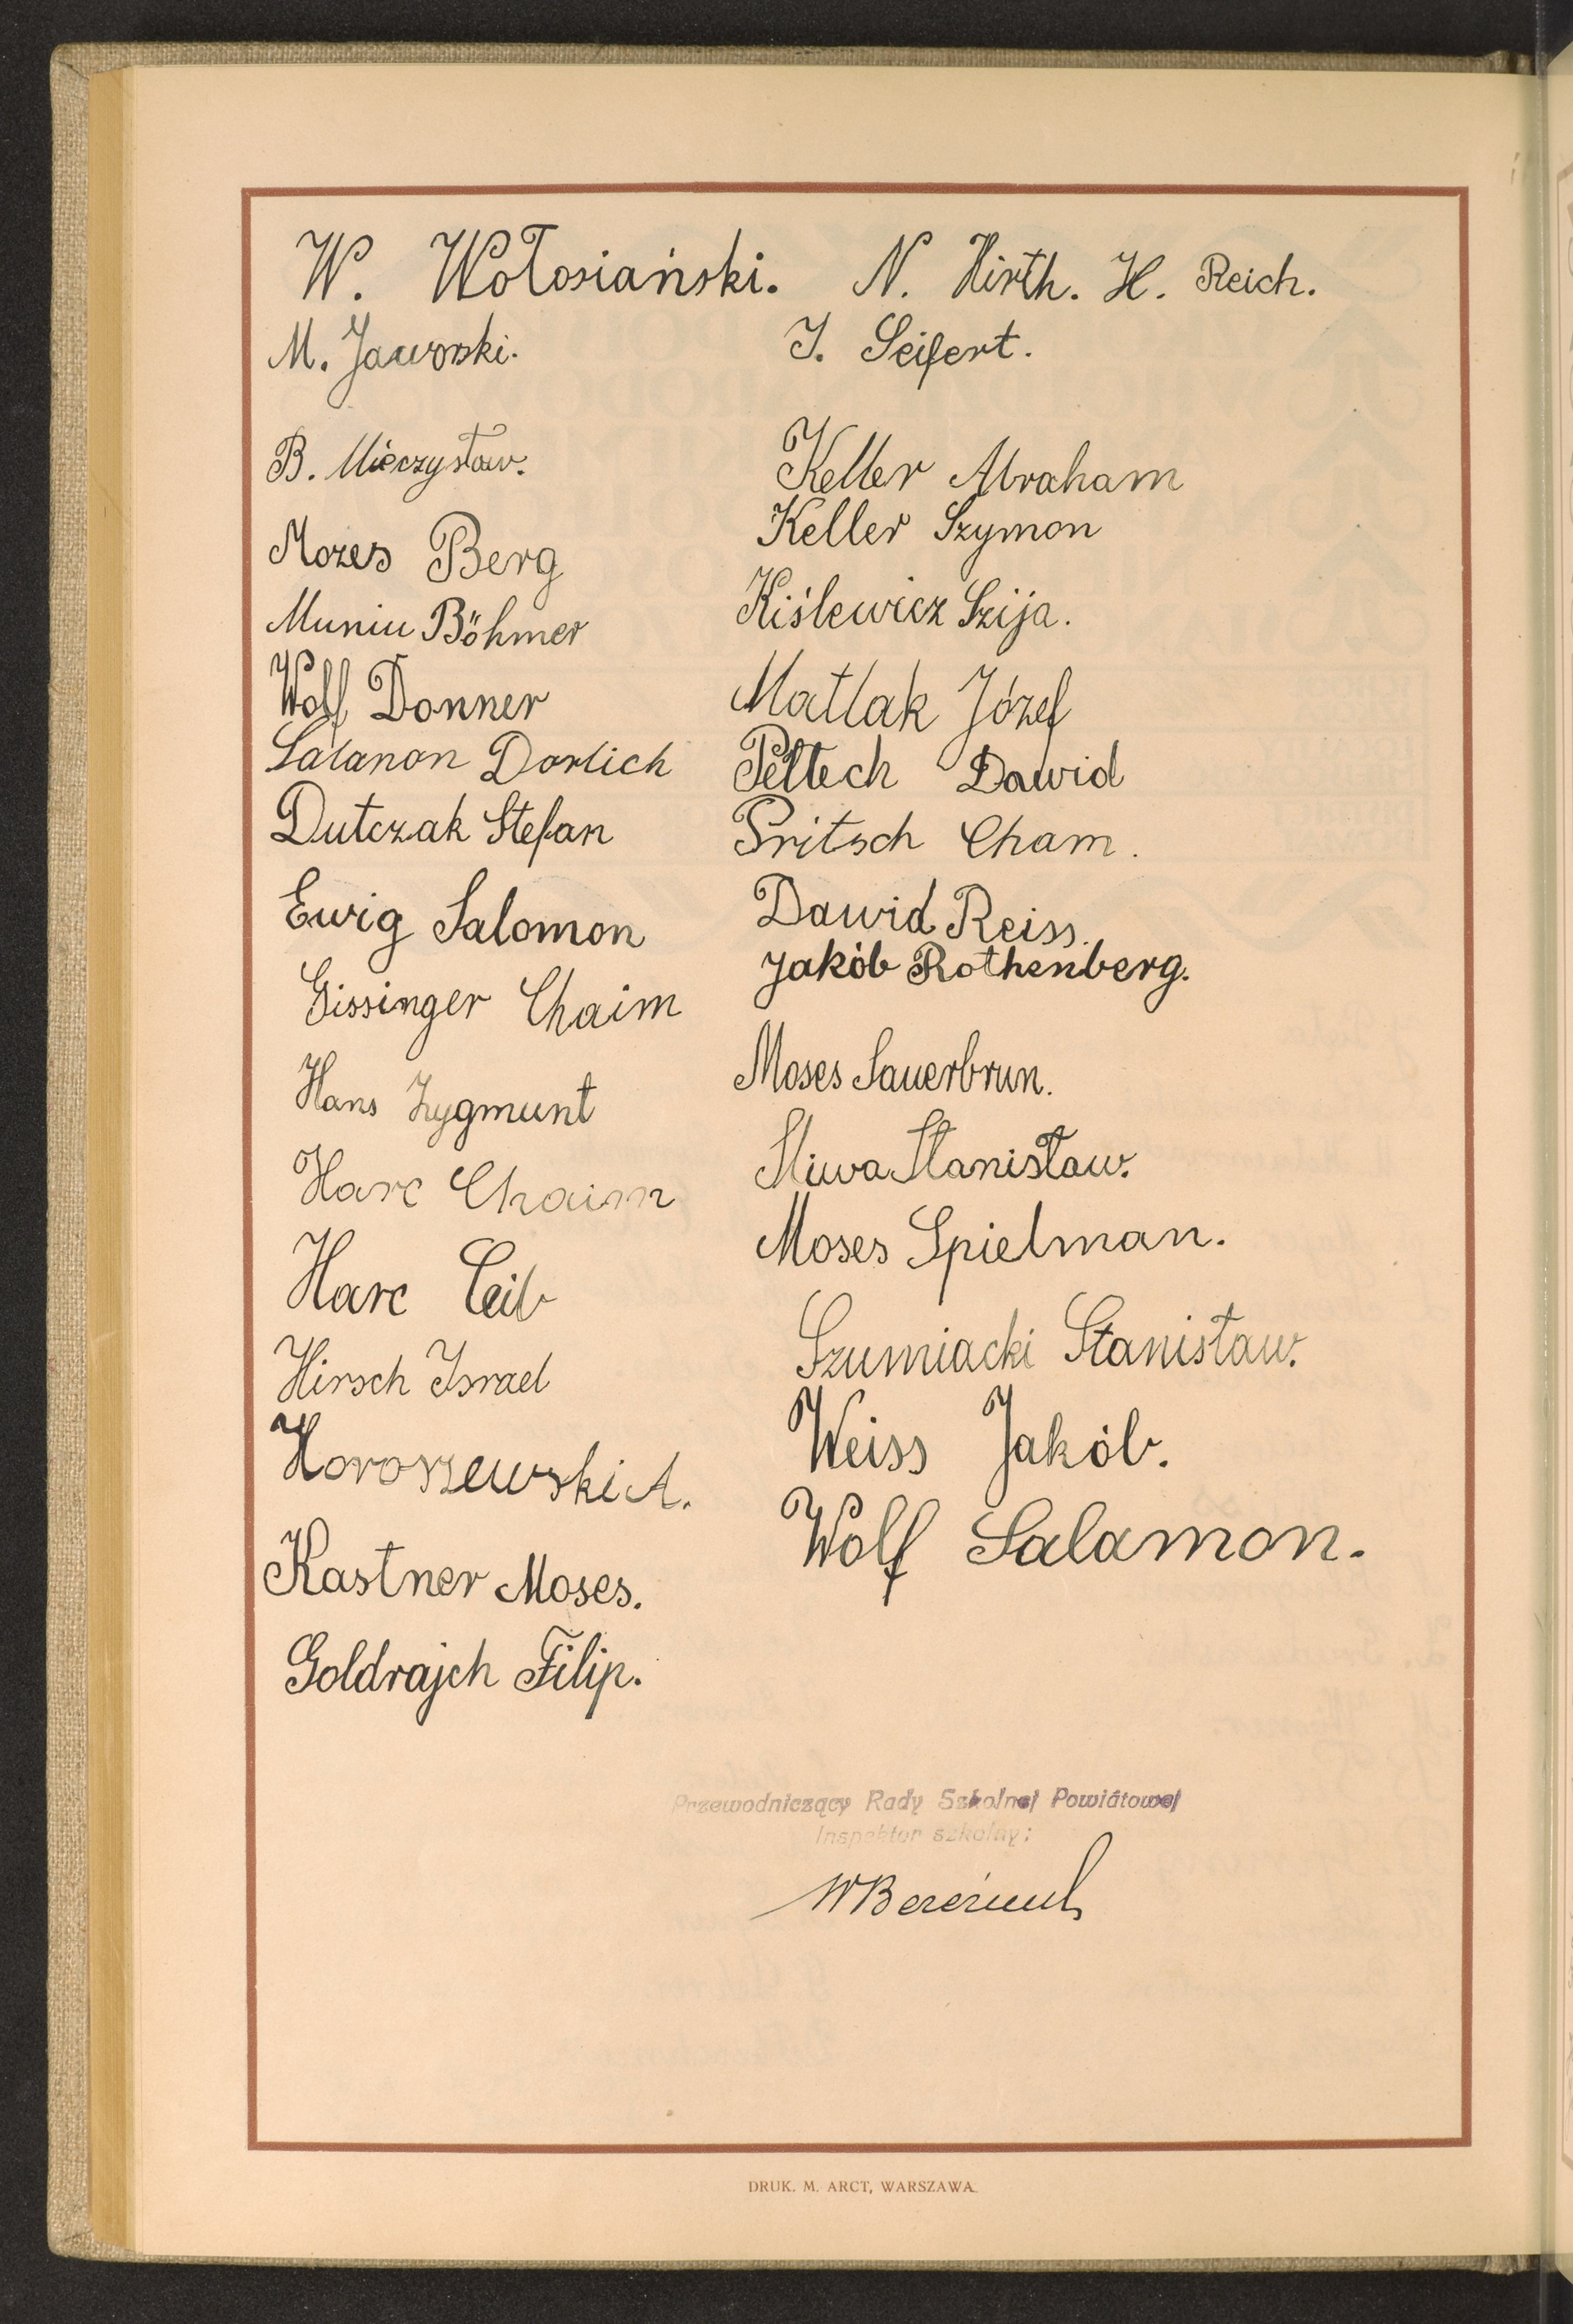 W. Wołosiański. N. Hirth. H. Reich.
M. Jaworski. J. Seifert.
B. Mieczysław.
Mozes Berg
Muniu Böhmer
Wolf Donner
Salanon Dorlich
Dutczak Stefan
Ewig Salomon
Gissinger Chaim
Hans Zygmunt
Harc Chaim
Harc Leib
Hirsch Israel
Horoszewski A.
Kastner Moses.
Goldrajch Filip.
Keller Abraham
Keller Szymon
Kiślewicz Szija.
Matlak Józef
Peltech Dawid
Pritsch Cham.
Dawid Reiss.
Jakób Rothenberg.
Moses Sauerbrun.
Sliwa Stanisław.
Moses Spielman.
Szumiacki Stanisław.
Weiss Jakób.
Wolf Salamon.
Przewodniczący Rady Szkolnej Powiatowej
Inspektor szkolny:
DRUK. M. ARCT, WARSZAWA.